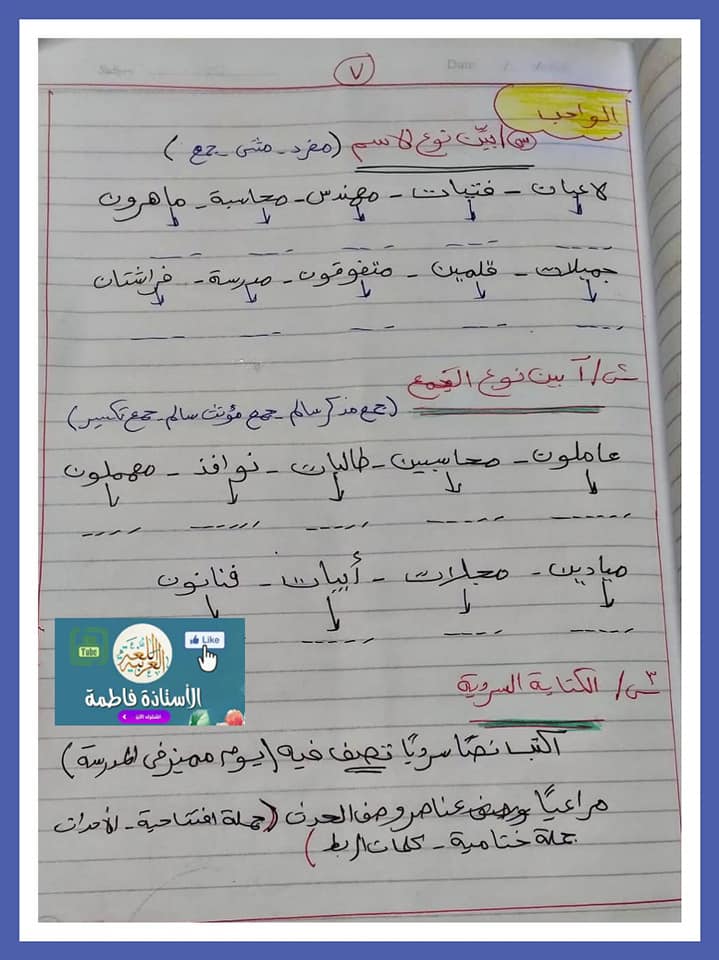 ٧
Date
الواجب
س١/ بيّن نوع الاسم (مفرد - مثنى - جمع)
لاعبان - فتيات - مهندس - محاسبة - ماهرون
جميلات - قلمين - متفوقون - مدرسة - فراشتان
س٢/ بين نوع الجمع
(جمع مذكر سالم - جمع مؤنث سالم - جمع تكسير)
عاملون - محاسبين - طالبات - نوافذ - مهملون
ميادين - مجلات - أبيات - فنانون
Tube
اللغة العربية
Like
الأستاذة فاطمة
اشترك الآن
س٣/ الكتابة السردية
اكتب نصًا سرديًا تصف فيه (يوم مميز في المدرسة)
مراعيًا عناصر وصف الحدث (جملة افتتاحية - الأحداث
جملة ختامية - كلمات الربط)